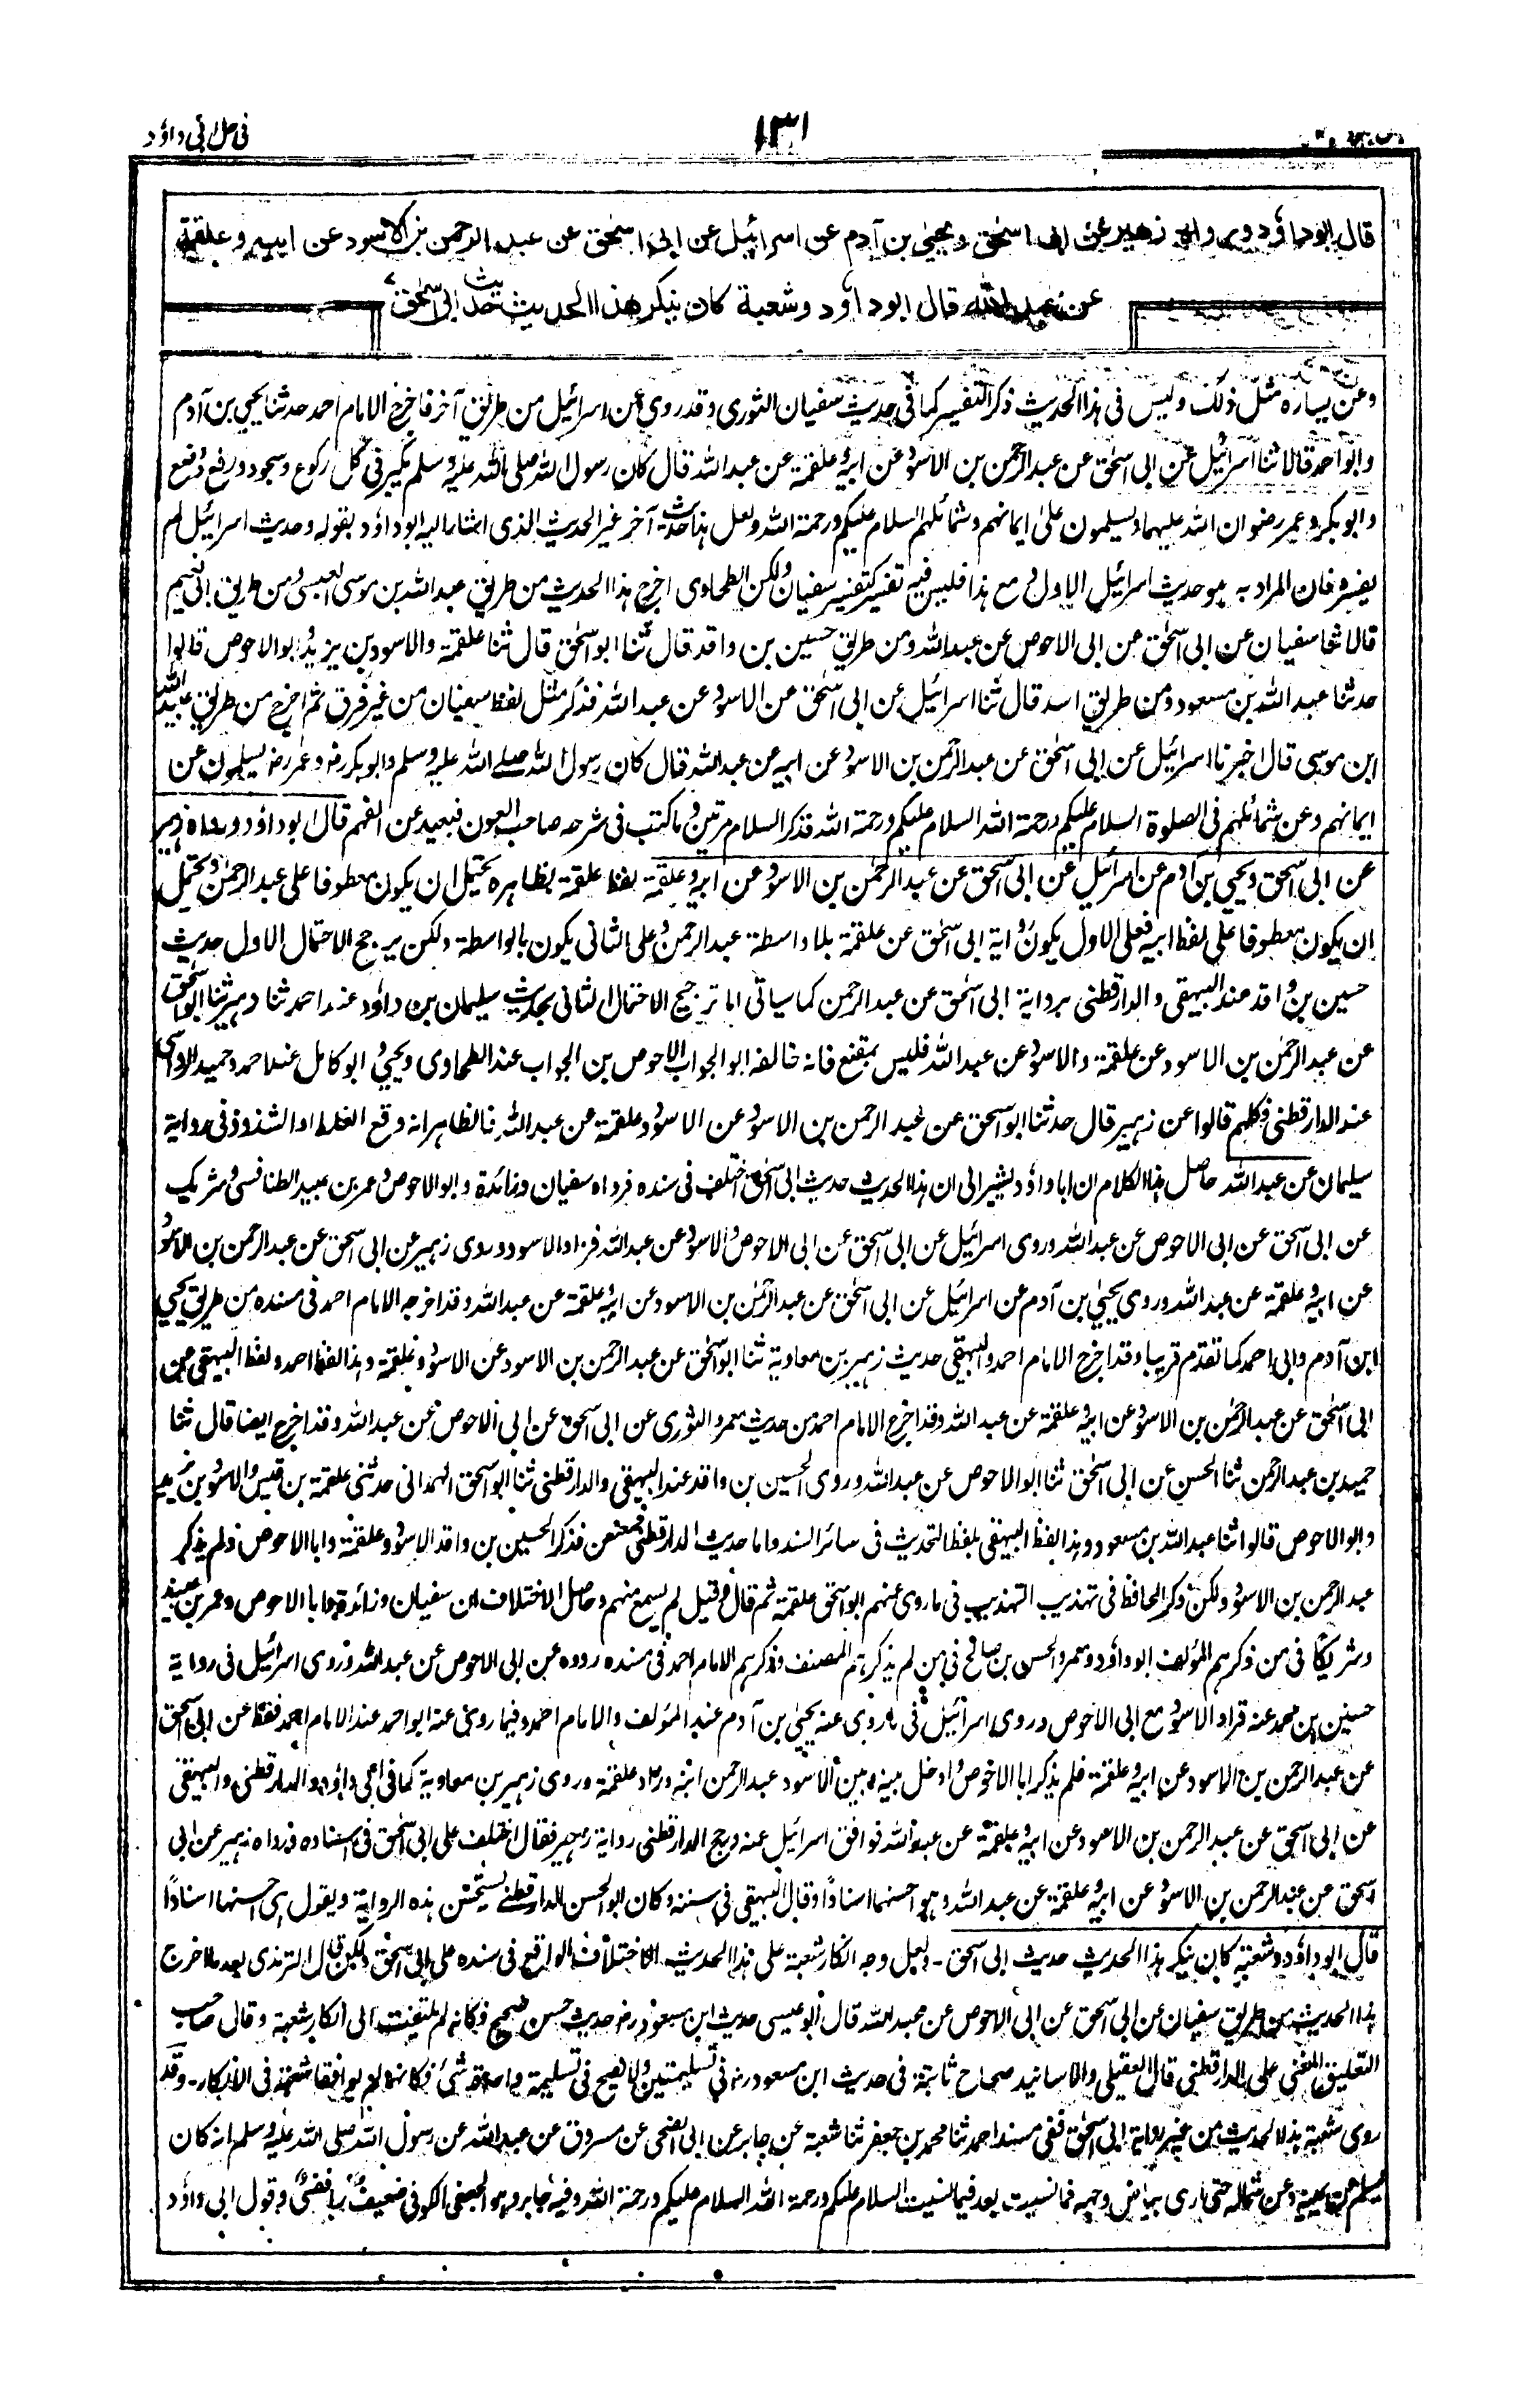 فى حل ابى داؤد
١٣١
قال ابو داؤد ورواه زهير عن ابى اسحٰق ويحيىٰ بن آدم عن اسرائيل عن ابى اسحٰق عن عبد الرحمن بن الاسود عن ابيه وعلقمة
عن عبد الله قال ابو داؤد وشعبة كان ينكر هذا الحديث حديث ابى اسحٰق
وعن يساره مثل ذلك وليس فى هذا الحديث ذكر التفسير كما فى حديث سفيان الثورى وقد روى عن اسرائيل من طريق آخر فاخرج الامام احمد حدثنا يحيي بن آدم
وابو احمد قالا ثنا اسرائيل عن ابى اسحٰق عن عبد الرحمن بن الاسود عن ابيه وعلقمة عن عبد الله قال كان رسول الله صلى الله عليه وسلم يكبر فى كل ركوع وسجود ورفع ووضع
وابو بكر وعمر رضوان الله عليهما ويسلمون على ايمانهم وشمائلهم السلام عليكم ورحمة الله ولعل هذا حديث آخر غير الحديث الذى اشار اليه ابو داؤد بقوله وحديث اسرائيل لم
يفسره فان المراد به هو حديث اسرائيل الاول ومع هذا فليس فيه تفسير كتفسير سفيان ولكن الطحاوى اخرج هذا الحديث من طريق عبد الله بن موسى العبسى ومن طريق ابى نعيم
قالا ثنا سفيان عن ابى اسحٰق عن ابى الاحوص عن عبد الله ومن طريق حسين بن واقد قال ثنا ابو اسحٰق قال ثنا علقمة والاسود بن يزيد وابو الاحوص قالوا
حدثنا عبد الله بن مسعود ومن طريق اسد قال ثنا اسرائيل عن ابى اسحٰق عن الاسود عن عبد الله فذكر مثل لفظ سفيان من غير فرق ثم اخرج من طريق عبيد الله
ابن موسى قال اخبرنا اسرائيل عن ابى اسحٰق عن عبد الرحمن بن الاسود عن ابيه عن عبد الله قال كان رسول الله صلے الله عليه وسلم وابو بكر رض وعمر رض يسلمون عن
ايمانهم وعن شمائلهم فى الصلوة السلام عليكم ورحمة الله السلام عليكم ورحمة الله فذكر السلام مرتين وما كتب فى شرحه صاحب العون فبعيد عن الفهم قال ابو داؤد ورواه زهير
عن ابى اسحق ويحيي بن آدم عن اسرائيل عن ابى اسحق عن عبد الرحمن بن الاسود عن ابيه وعلقمة لفظ علقمة بظاهره يحتمل ان يكون معطوفا على عبد الرحمن ويحتمل
ان يكون معطوفا على لفظ ابيه فعلى الاول يكون رواية ابى اسحٰق عن علقمة بلا واسطة عبد الرحمن وعلى الثانى يكون بالواسطة ولكن يرجح الاحتمال الاول حديث
حسين بن واقد عند البيهقى والدارقطنى برواية ابى اسحٰق عن عبد الرحمن كما سياتى اما ترجيح الاحتمال الثانى بحديث سليمان بن داؤد عند احمد ثنا زهير ثنا ابو اسحٰق
عن عبد الرحمن بن الاسود عن علقمة والاسود عن عبد الله فليس بمقنع فانه خالفه ابو الجواب الاحوص بن الجواب عند الطحاوى ويحيي وابو كامل عند احمد وحميد الرواسى
عند الدارقطنى فكلهم قالوا عن زهير قال حدثنا ابو اسحق عن عبد الرحمن بن الاسود عن الاسود وعلقمة عن عبد الله فالظاهر انه وقع الغلط او الشذوذ فى رواية
سليمان عن عبد الله حاصل هذا الكلام ان ابا داؤد يشير الى ان هذا الحديث حديث ابى اسحٰق اختلف فى سنده فرواه سفيان وزائدة وابو الاحوص وعمر بن عبيد الطنافسى وشريك
عن ابى اسحق عن ابى الاحوص عن عبد الله وروى اسرائيل عن ابى اسحق عن ابى الاحوص والاسود عن عبد الله فزاد الاسود وروى زهير عن ابى اسحق عن عبد الرحمن بن الاسود
عن ابيه وعلقمة عن عبد الله وروى يحيىٰ بن آدم عن اسرائيل عن ابى اسحٰق عن عبد الرحمٰن بن الاسود عن ابيه وعلقمة عن عبد الله وقد اخرجه الامام احمد فى مسنده من طريق يحيي
ابن آدم وابى احمد كما تقدم قريبا وقد اخرج الامام احمد والبيهقى حديث زهير بن معاوية ثنا ابو اسحٰق عن عبد الرحمن بن الاسود عن الاسود وعلقمة وهذا لفظ احمد ولفظ البيهقى عن
ابى اسحٰق عن عبد الرحمٰن بن الاسود عن ابيه وعلقمة عن عبد الله وقد اخرج الامام احمد من حديث معمر والثورى عن ابى اسحق عن ابى الاحوص عن عبد الله وقد اخرج ايضا قال ثنا
حميد بن عبد الرحمن ثنا الحسن عن ابى اسحٰق ثنا ابو الاحوص عن عبد الله وروى الحسين بن واقد عند البيهقى والدارقطنى ثنا ابو اسحق الهمدانى حدثنى علقمة بن قيس والاسود بن يزيد
وابو الاحوص قالوا ثنا عبد الله بن مسعود وهذا لفظ البيهقى بلفظ التحديث فى سائر السند واما حديث الدارقطنى فمعنعن فذكر الحسين بن واقد الاسود وعلقمة وابا الاحوص ولم يذكر
عبد الرحمن بن الاسود ولكن ذكر الحافظ فى تهذيب التهذيب فى ما روى عنهم ابو اسحٰق علقمة ثم قال وقيل لم يسمع منهم وحاصل الاختلاف ان سفيان وزائدة وابا الاحوص وعمر بن عبيد
وشريكا فى من ذكرهم المؤلف ابو داؤد ومعمر والحسن بن صالح فى من لم يذكرهم المصنف وذكرهم الامام احمد فى مسنده رووه عن ابى الاحوص عن عبد الله وروى اسرائيل فى رواية
حسين بن محمد عنه فزاد الاسود مع ابى الاحوص وروى اسرائيل فى ما روى عنه يحيىٰ بن آدم عند المؤلف والامام احمد وفيما روى عنه ابو احمد عند الامام احمد فقط عن ابى اسحٰق
عن عبد الرحمن بن الاسود عن ابيه وعلقمة فلم يذكر ابا الاحوص وادخل بينه وبين الاسود عبد الرحمن ابنه وزاد علقمة وروى زهير بن معاوية كما فى ابى داؤد والدارقطنى والبيهقى
عن ابى اسحٰق عن عبد الرحمن بن الاسود عن ابيه وعلقمة عن عبد الله فوافق اسرائيل عنه ورجح الدارقطنى رواية زهير فقال اختلف على ابى اسحٰق فى اسناده فرواه زهير عن ابى
اسحق عن عبد الرحمن بن الاسود عن ابيه وعلقمة عن عبد الله وهو احسنها اسنادًا وقال البيهقى فى سننه وكان ابو الحسن الدارقطنے يستحسن هذه الرواية ويقول هى احسنها اسنادًا
قال ابو داؤد وشعبة كان ينكر هذا الحديث حديث ابى اسحٰق ۔ لعل وجه انكار شعبة على هذا الحديث الاختلاف الواقع فى سنده على ابى اسحٰق ولكن قال الترمذى بعد ما اخرج
هذا الحديث من طريق سفيان عن ابى اسحق عن ابى الاحوص عن عبد الله قال ابو عيسى حديث ابن مسعود رض حديث حسن صحيح فكانه لم يلتفت الى انكار شعبة وقال صاحب
التعليق المغنى على الدارقطنى قال العقيلى والاسانيد صحاح ثابتة فى حديث ابن مسعود رض فى تسليمتين ولا يصح فى تسليمة واحدة شئ فكانهما لم يوافقا شعبة فى الانكار ۔ وقد
روى شعبة هذا الحديث من غير رواية ابى اسحٰق ففى مسند احمد ثنا محمد بن جعفر ثنا شعبة عن جابر عن ابى الضحى عن مسروق عن عبد الله عن رسول الله صلى الله عليه وسلم انه كان
يسلم عن يمينه وعن شماله حتى ارى بياض وجهه فما نسيت بعد فيما نسيت السلام عليكم ورحمة الله السلام عليكم ورحمة الله وفيه جابر وهو الجعفى الكوفى ضعيف رافضى وقول ابى داؤد